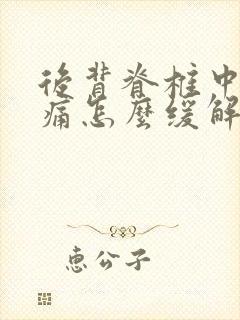 後背脊柱中
痛怎麼緩解
惠公子